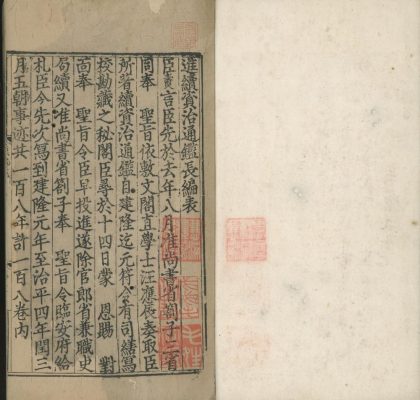 進續資治通鑑長編表
臣燾言臣先於去年八月准尚書省劄子三省
同奉　聖旨依敷文閣直學士汪應辰奏取臣
所著續資治通鑑自建隆迄元符令有司繕寫
校勘藏之秘閣臣尋於十四日蒙　恩賜　對
面奉　聖旨令臣早投進遂除官郎省兼職史
局續又准尚書省劄子奉　聖旨令臨安府給
札臣今先次寫到建隆元年至治平四年閏三
月五朝事迹共一百八年計一百八卷內